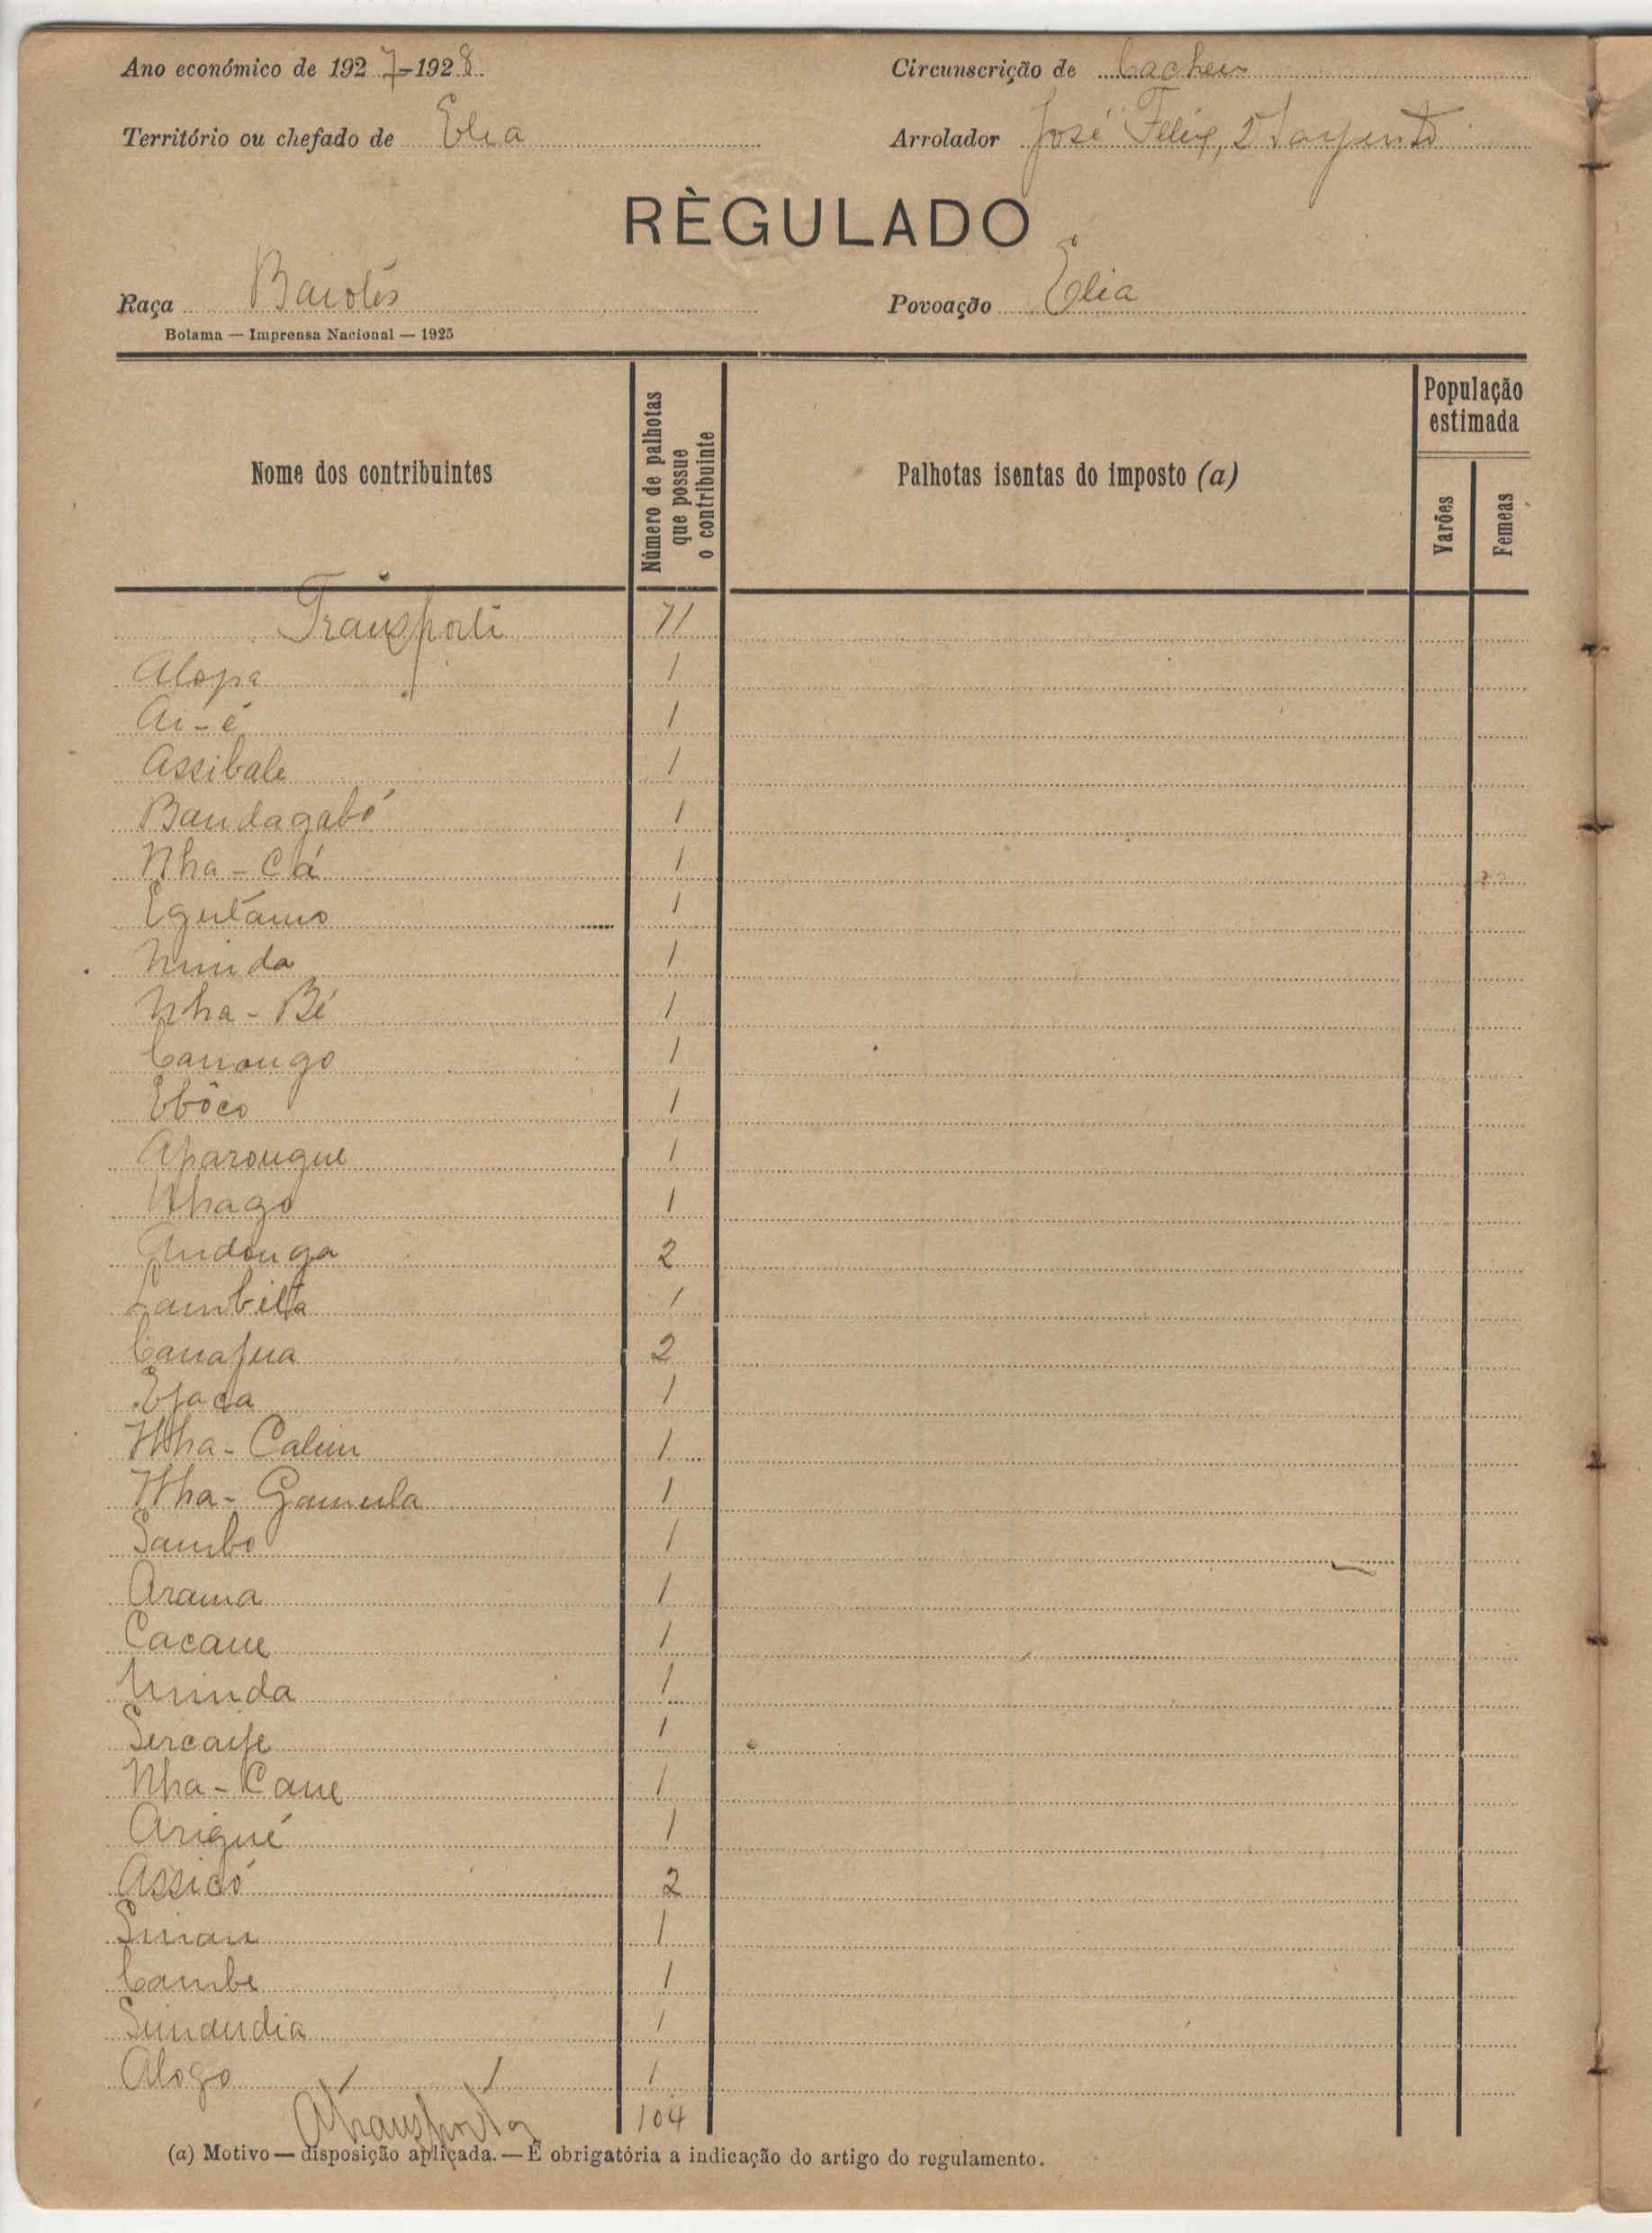 Ano económico de 1927-1928
Circunscrição de Cacheu
Território ou chefado de Elia
Arrolador José Felix, 2º Sargento
RÈGULADO
Raça Baiotes
Povoação Elia
Bolama — Imprensa Nacional — 1925
Nome dos contribuintes
Número de palhotas que possue o contribuinte
Palhotas isentas do imposto (a)
População estimada
Varões
Femeas
Transporte 71
Alopa 1
Ai-é 1
Assibale 1
Bandagabó 1
Nha-Cá 1
Egutamo 1
Ninida 1
Nha-Bé 1
Canongo 1
Ebôco 1
Aparongue 1
Nhago 1
Andonga 2
Sambilta 1
Canafua 2
Ejaca 1
Nha-Calim 1
Nha-Gamula 1
Sambo 1
Arama 1
Cacaue 1
Ninida 1
Sercaife 1
Nha-Caue 1
Arigué 1
Assicó 2
Sinau 1
Cambe 1
Sinandia 1
Alogo 1
A transportar 104
(a) Motivo — disposição aplicada. — É obrigatória a indicação do artigo do regulamento.